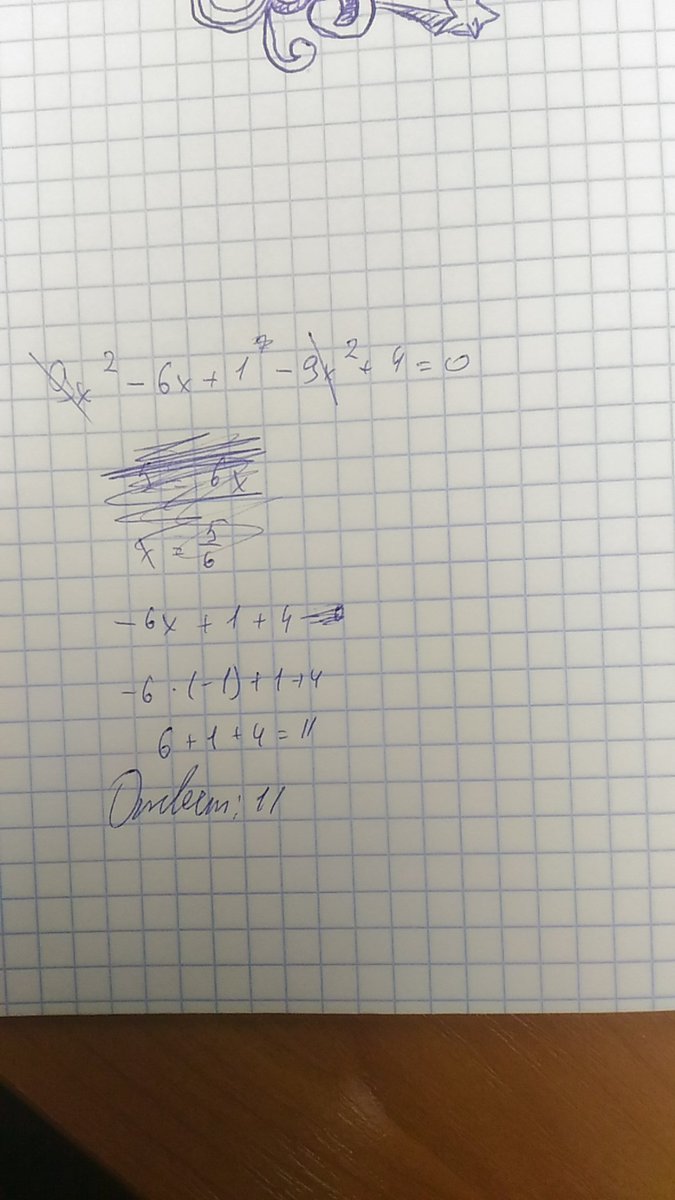 9x² - 6x + 1² - 9x² + 4 = 0
5 = 6x
x = 5/6
-6x + 1 + 4
-6 · (-1) + 1 + 4
6 + 1 + 4 = 11
Ответ: 11